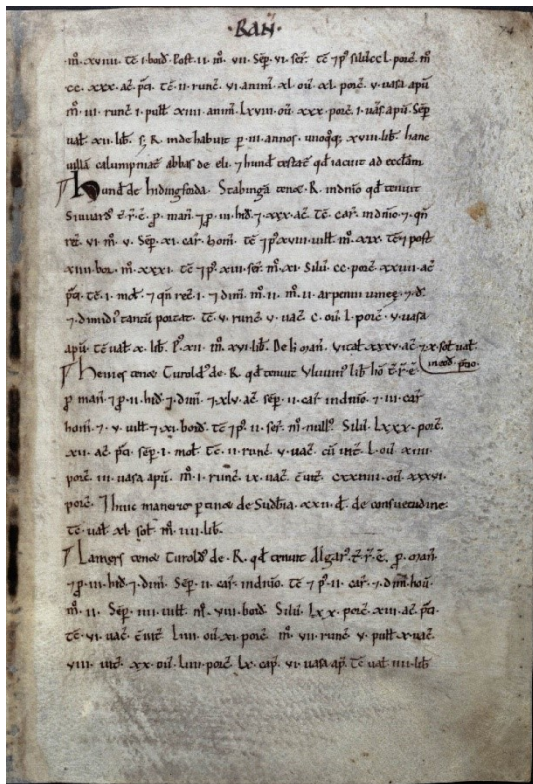 ·RAN̄·
74
m̄. xviiii. Te i. bord. Post. ii. m̄. vii. Sēp. vi. ser. Tc̄ ⁊ p⁹ silu. ccl. porc̄. m̄
cc. xxx. ac̄. p̄ti. Tc̄. ii. runc̄. vi. animł. xl. où. xl. porc̄. v. uasa apū
m̄. iii. runc̄. i. pull. xiiii. animł. lxviii. où. xxx. porc̄. i. uas. apū. Sēp
uał. xii. lib̄. s; R. inde habuit p. iii. annos. unoqq; xviii. lib̄. hanc
uillā calumpniat abbas de eli. ⁊ hund testat̄ qd iacuit ad ecclām
Hund de hidingforda. Stabingā tenet. R. in dn̄io qd tenuit
Siuuard⁹ t̄. r̄. ē. p. mań ⁊ p. iii. hid. ⁊. xxx. ac̄. Tc̄. car̄. in dn̄io. ⁊. qn̄
rec̄. vi. m̄. v. Sēp. xi. car̄. hom̄. Tc̄ ⁊ p⁹ xviii. uill. m̄. xix. Tc̄ ⁊ post
xiii. bor. m̄. xxxi. Tc̄ ⁊ p⁹. xiii. ser. m̄. xi. Silu. cc. porc̄. xxiiii. ac̄
p̄ti. Tc̄. i. mol. ⁊ qn̄ rec̄. i. ⁊ dim̄. m̄. ii. m̄. ii. arpenni uineę. ⁊. d̄.
⁊. dimidi⁹ tantū portat. Tc̄. v. runc̄. v. uac̄. c. où. l. porc̄. v. uasa
apū. Tc̄ uał. x. lib̄. P⁹. xii. m̄. xvi. lib̄. De h̄ mań. xxxv. ac̄ ⁊ x. sot uał
in eod. p̄tio.
Thenies tenet Turold⁹ de. R. qd tenuit Vluuin⁹ lib̄ hō t̄. r̄. ē.
p. mań ⁊ p. ii. hid. ⁊. dim̄. ⁊ xlv. ac̄. Sēp. ii. car̄ in dn̄io. ⁊. iii. car̄
hom̄. ⁊. v. uill. ⁊. xi. bord. Tc̄ ⁊ p⁹. ii. ser. m̄. null⁹. Silu. lxxx. porc̄.
xii. ac̄. p̄ti. Sēp. i. mol. Tc̄. ii. runc̄. v. uac̄. cū uit. l. où. xiiii.
porc̄. iii. uasa apū. m̄. i. runc̄. ix. uac̄. c̄ uit. cxxiiii. où. xxxvi.
porc̄. Huic manerio ptinet de Sudb̄ia. xxii. d̄. de consuetudine.
Tc̄ uał. xl. sol. m̄. iiii. lib̄.
Lamers tenet Turold⁹ de. R. qd tenuit Algar⁹. t̄. r̄. ē. p. mań
⁊ p. iii. hid. ⁊. dim̄. Sēp. ii. car̄. in dn̄io. Tc̄ ⁊ p⁹. ii. car̄. ⁊. dim̄. hoū.
m̄. ii. Sēp. iiii. uill. m̄. viii. bord. Silu. lxx. porc̄. xiii. ac̄. p̄ti.
Tc̄. vi. uac̄. c̄ uit. liiii. où. xi. porc̄. m̄. vii. runc̄. v. pull. x. uac̄.
viii. uit. xx. où. liiii. porc̄. lx. cap̄. vi. uasa ap̄. Tc̄ uał iiii. lib̄